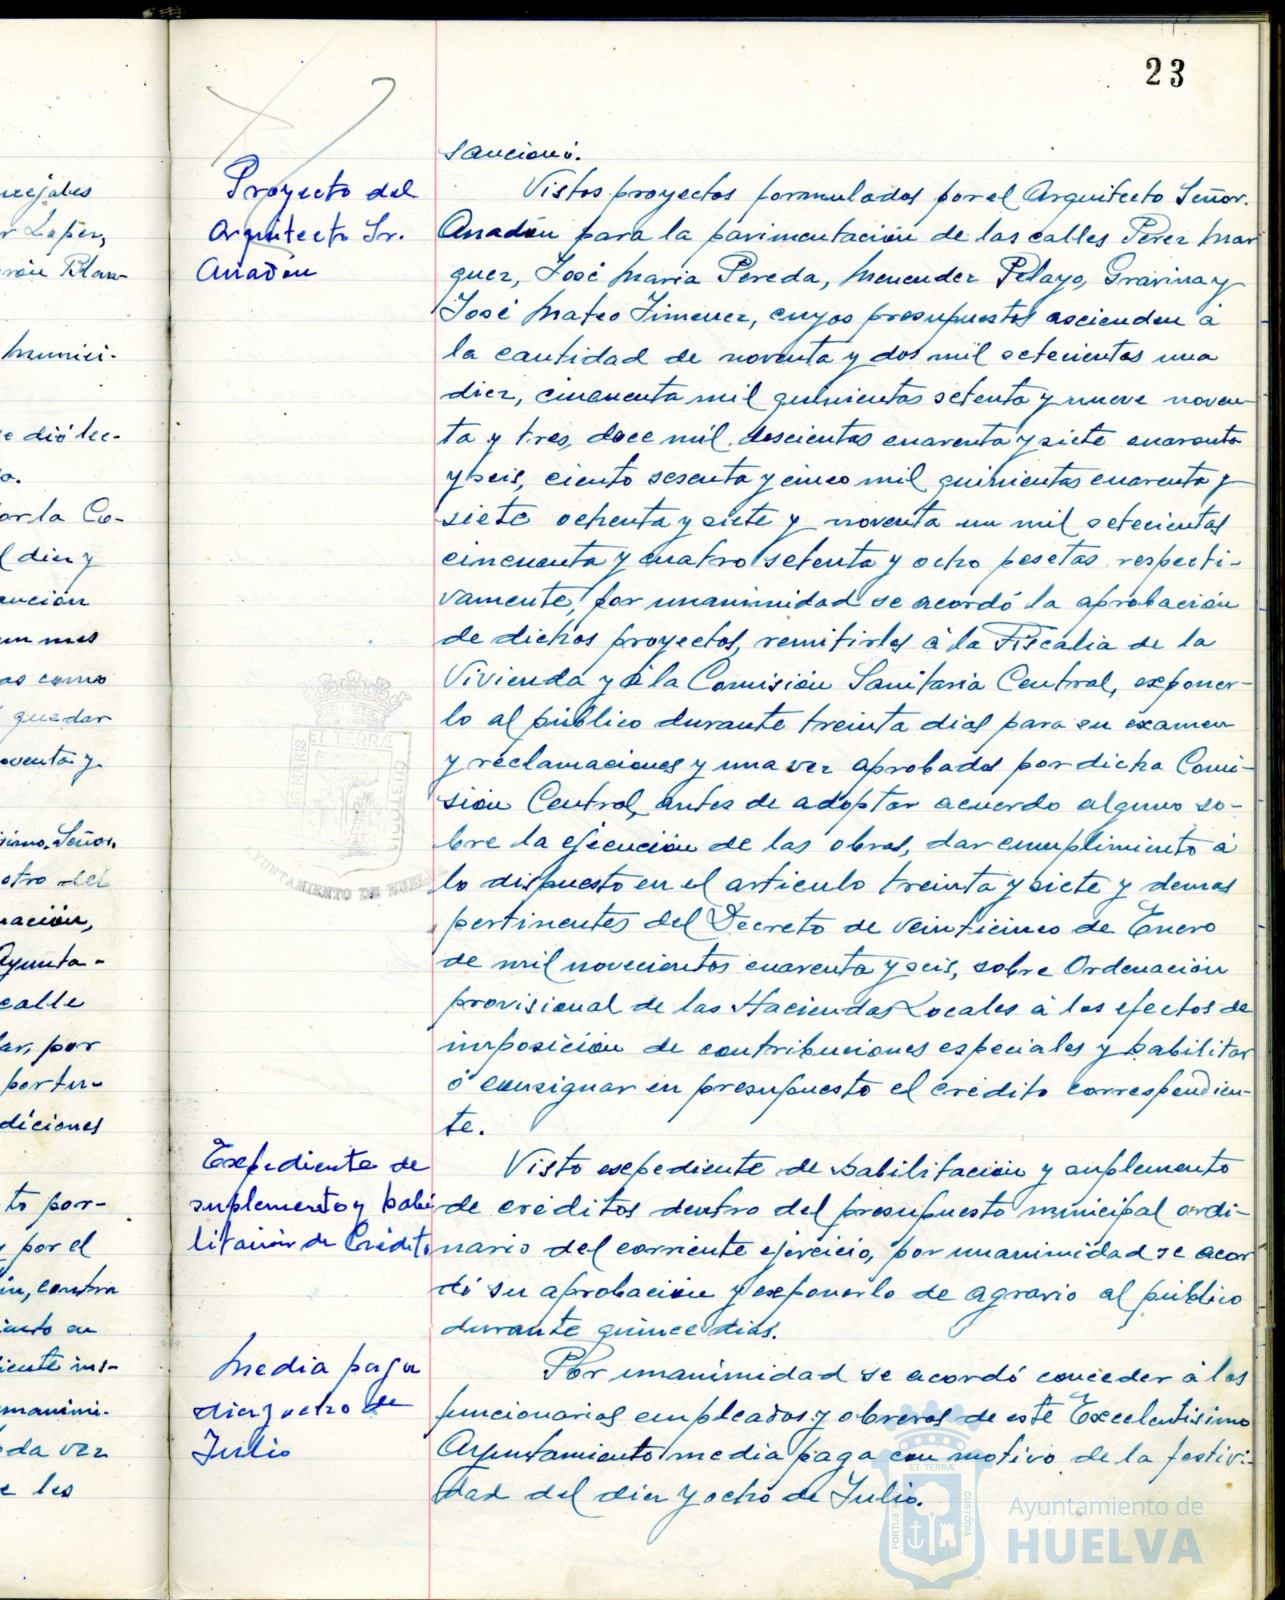 23
ncejales
r Lopez,
Munici-
se dió lec-
o.
or la Co-
l diez y
un mes
as como
quedar
oventa y
isimo. Señor.
otro del
nación,
Ayunta-
calle
lar, por
portu-
diciones
to por-
y por el
in, contra
iento en
iente ins-
manimi-
oda vez
e les
Proyecto del
Arquitecto Sr.
Anadón
sancionó.
Vistos proyectos formulados por el Arquitecto Señor.
Anadón para la pavimentación de las calles Perez Mar
quez, José Maria Pereda, Menendez Pelayo, Gravina y
José Mateo Jimenez, cuyos presupuestos ascienden á
la cantidad de noventa y dos mil setecientas una
diez, cincuenta mil quinientas setenta y nueve noven-
ta y tres, doce mil doscientas cuarenta y siete cuarenta
y seis, ciento sesenta y cinco mil quinientas cuarenta y
siete ochenta y siete y noventa un mil setecientas
cincuenta y cuatro setenta y ocho pesetas respecti-
vamente, por unanimidad se acordó la aprobación
de dichos proyectos, remitirlos á la Fiscalia de la
Vivienda y á la Comisión Sanitaria Central, exponer-
lo al público durante treinta dias para su examen
y reclamaciones y una vez aprobados por dicha Comi-
sión Central, antes de adoptar acuerdo alguno so-
bre la ejecución de las obras, dar cumplimiento á
lo dispuesto en el articulo treinta y siete y demas
pertinentes del Decreto de veinticinco de Enero
de mil novecientos cuarenta y seis, sobre Ordenación
provisional de las Haciendas Locales á los efectos de
imposición de contribuciones especiales y habilitar
ó consignar en presupuesto el crédito correspondien-
te.
Expediente de
suplemento y habi
litación de Crédito
Visto expediente de habilitación y suplemento
de créditos dentro del presupuesto municipal ordi-
nario del corriente ejercicio, por unanimidad se acor
dó su aprobación y exponerlo de agravio al público
durante quince dias.
Media paga
diez y ocho de
Julio
Por unanimidad se acordó conceder á los
funcionarios empleados y obreros de este Excelentisimo
Ayuntamiento media paga con motivo de la festivi-
dad del diez y ocho de Julio.
ET TERRÆ
MARIS
CUSTODIA
AYUNTAMIENTO DE HUELVA
ET TERRÆ
PORTUS
CUSTODIA
Ayuntamiento de
HUELVA